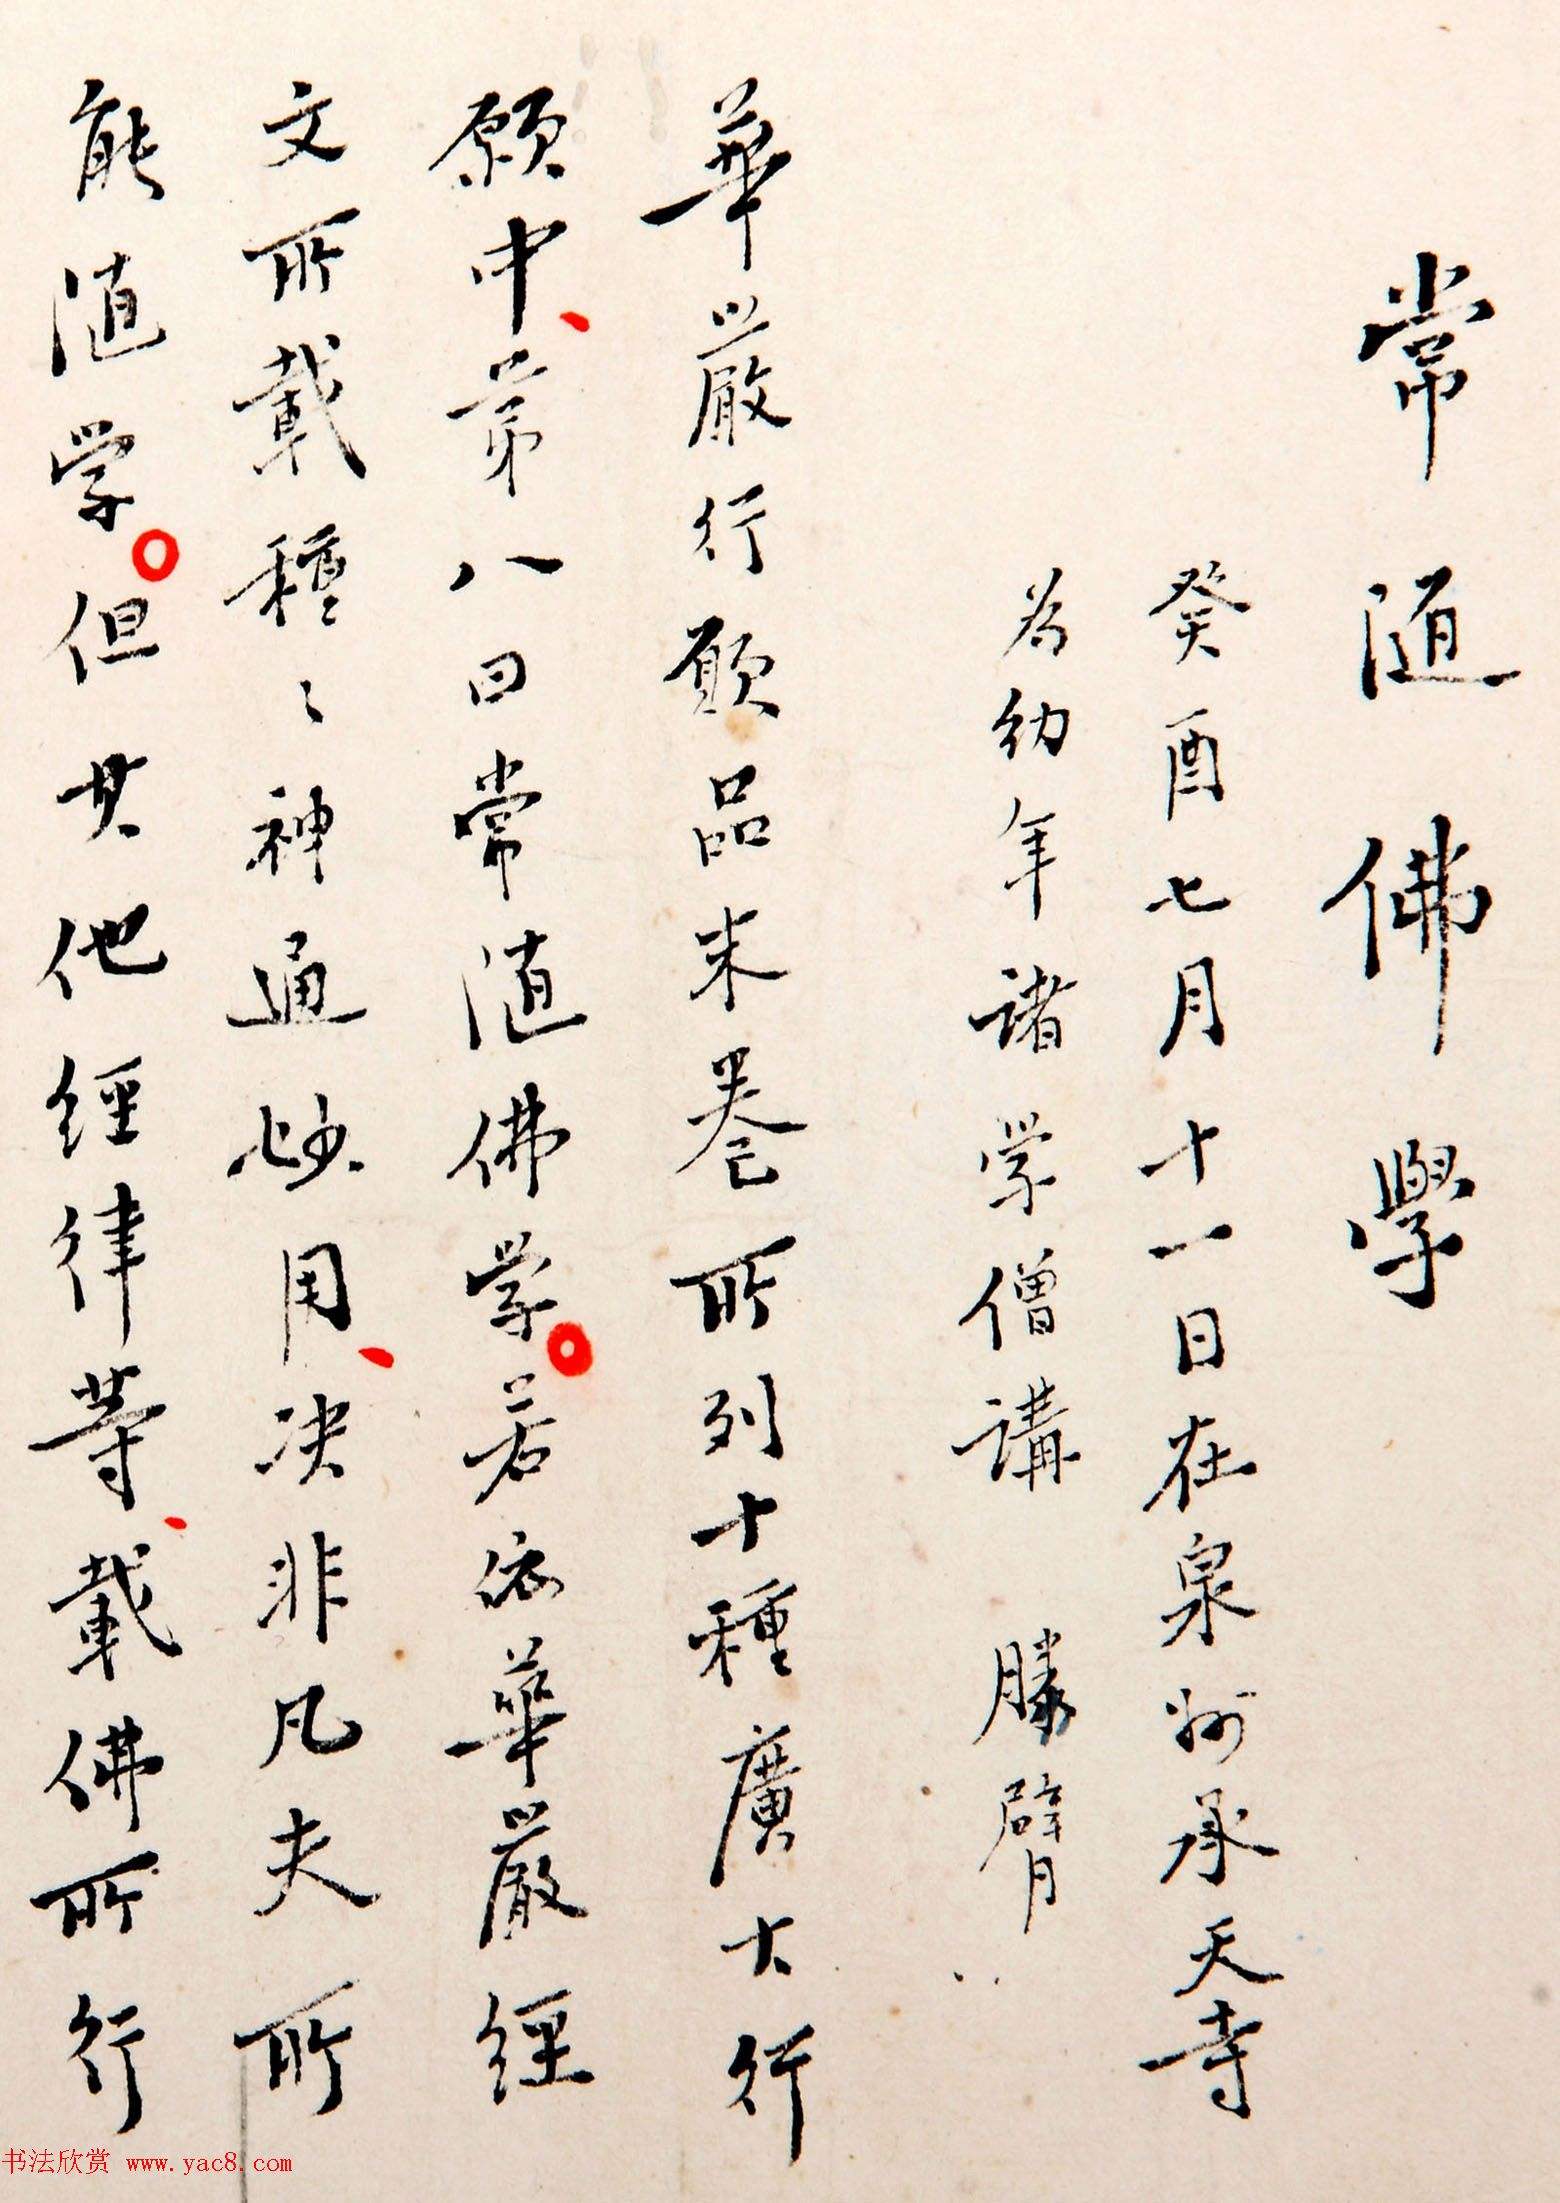 常随佛學
癸酉七月十一日在泉州承天寺
为幼年诸学僧講 勝臂
華嚴行願品末卷所列十種廣大行
願中、第八曰常随佛学。若依華嚴經
文所載種々神通妙用、决非凡夫所
能随学。但其他經律等、載佛所行
书法欣赏 www.yac8.com